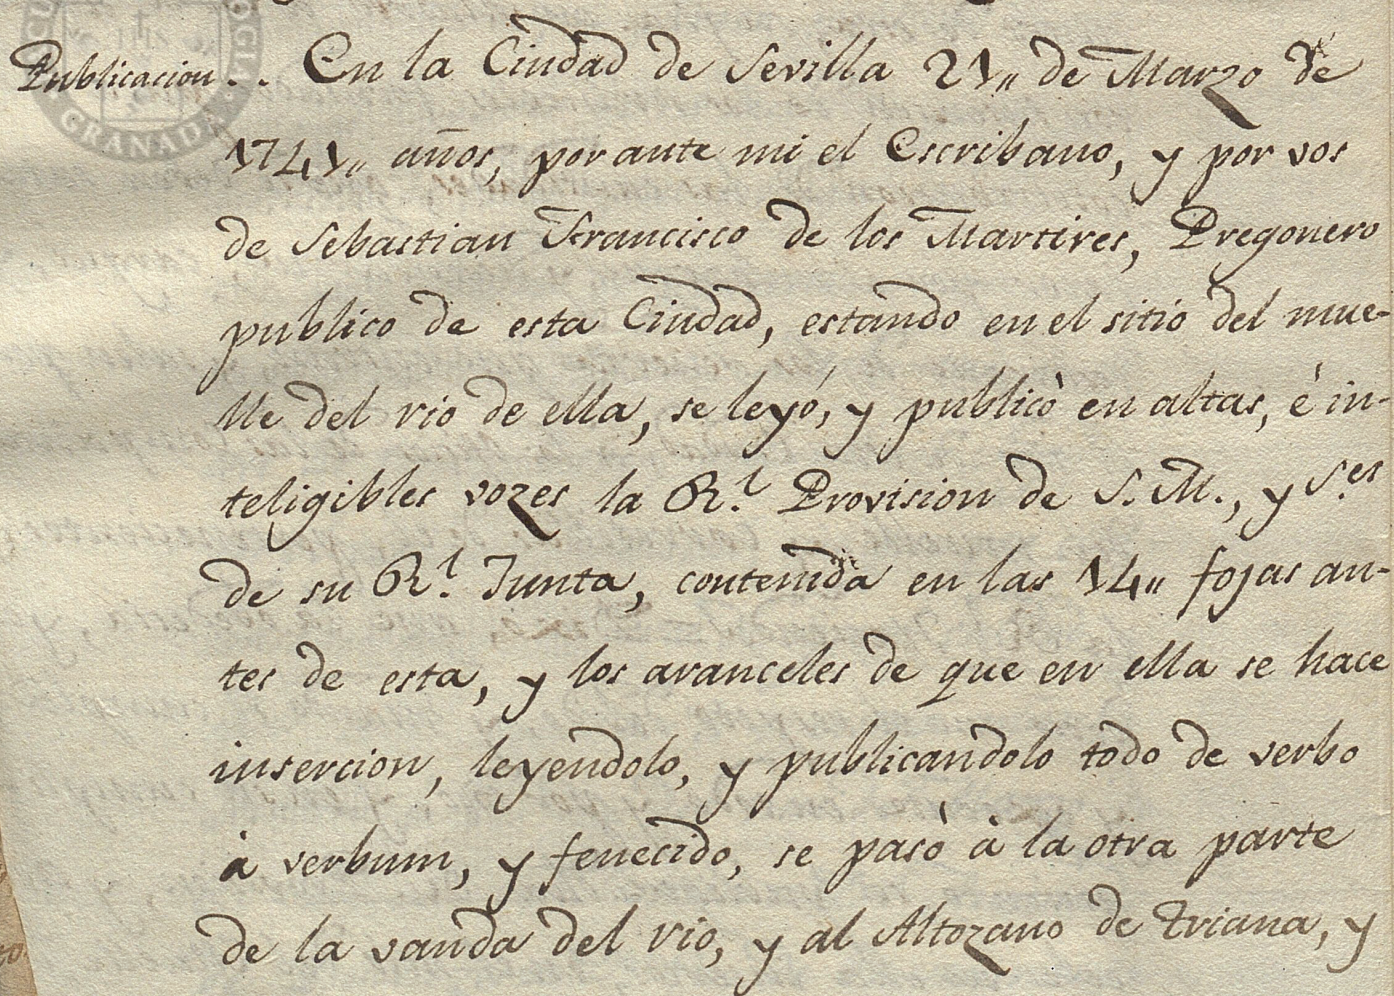 Publicacion . . En la Ciudad de Sevilla 21,, de Marzo de
1741,, años, por ante mi el Escribano, y por vos
de Sebastian Francisco de los Martires, Pregonero
publico de esta Ciudad, estando en el sitio del mue-
lle del rio de ella, se leyó, y publicò en altas, è in-
teligibles vozes la R.l Provision de S. M., y S.es
de su R.l Junta, contenida en las 14,, fojas an-
tes de esta, y los aranceles de que en ella se hace
insercion, leyendolo, y publicandolo todo de verbo
à verbum, y fenecido, se pasò à la otra parte
de la vanda del rio, y al Altozano de Triana, y
GRANADA